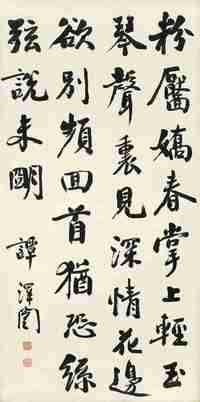 粉靨嬌春掌上輕玉
琴聲裏見深情花邊
欲別頻回首猶恐絲
弦說未明
譚澤闓